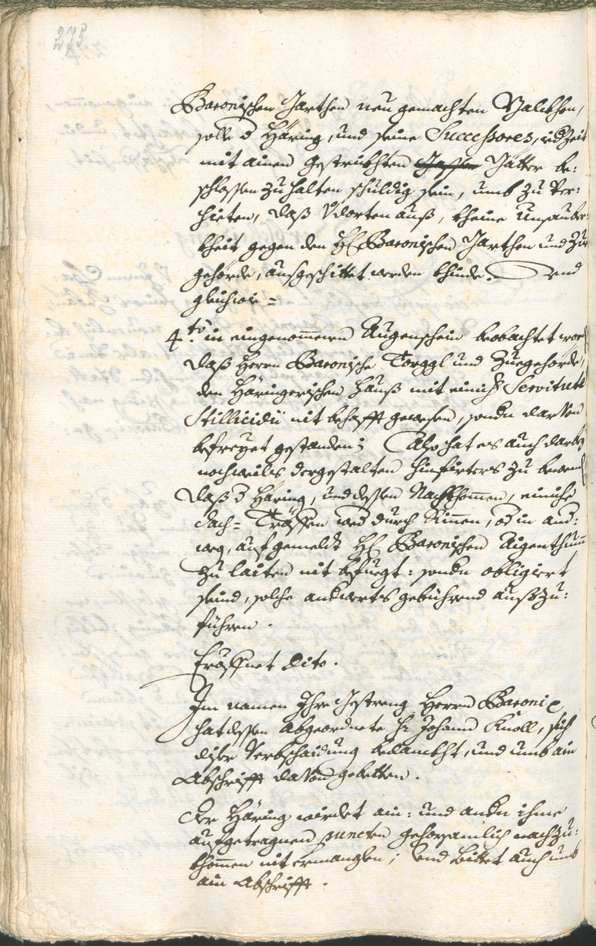 275
Baronischen Garthen neu gemachten Palckhen,
solle d Häring, und seine Successores, ied Zeit
mit ainen gestrickhten Gätter be:
schlossen zu halten schuldig sein, umb zu ver:
hieten, daß dorten auß, kheine Unsauber:
kheit gegen den H: Baronischen Garthen und Zu
gehörde, außgeschittet werden khinde. Und
gleichwie =
4.to in eingenommenen Augenschein beobachtet wor
daß Herrn Baronische Torggl und Zuegehörde,
dem Häringerischen Hauß mit einich Servitut
Stillicidii nit behafft gewesen, sondn darvon
befreyet gestanden; Also hat es auch darbey
nochmalls dergestalten hinfürters zu bewend
daß d Häring, und dessen Nachkhomen, einiche
Dach= Trapfen wed durch Rinnen, od in and:
weg, auf gemelt H: Baronischen Aigenthumb
zu laiten nit befuegt: sondn obligiert
seind, solche anderwerts gebührend auszu:
führen.
Eröffnet dito.
Im namen Ihro Gestreng Herrn Baronie
hat dessen Abgeordnete H: Johann Knoll, sich
diser Verbschaidung bedanckht, und umb ain
Abschrifft davon gebetten.
Der Häring wirdet ain: und andn ihme
aufgetragnen puncten gehorsamlich nachzu:
khommen nit ermanglen; und bittet auch umb
ain Abschrifft.